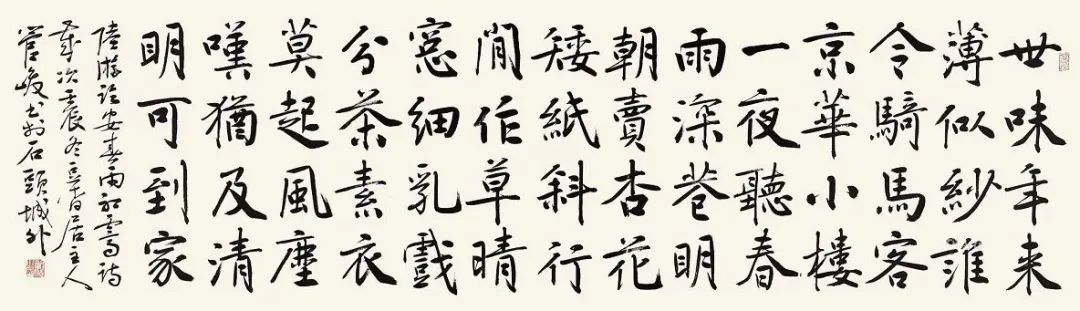 世味年来
薄似紗誰
令騎馬客
京華小樓
一夜聽春
雨深巷明
朝賣杏花
矮紙斜行
閒作草晴
窓細乳戲
分茶素衣
莫起風塵
嘆猶及清
明可到家
陸游臨安春雨初霽詩
歲次壬辰冬居主人
管峻書於石頭城外